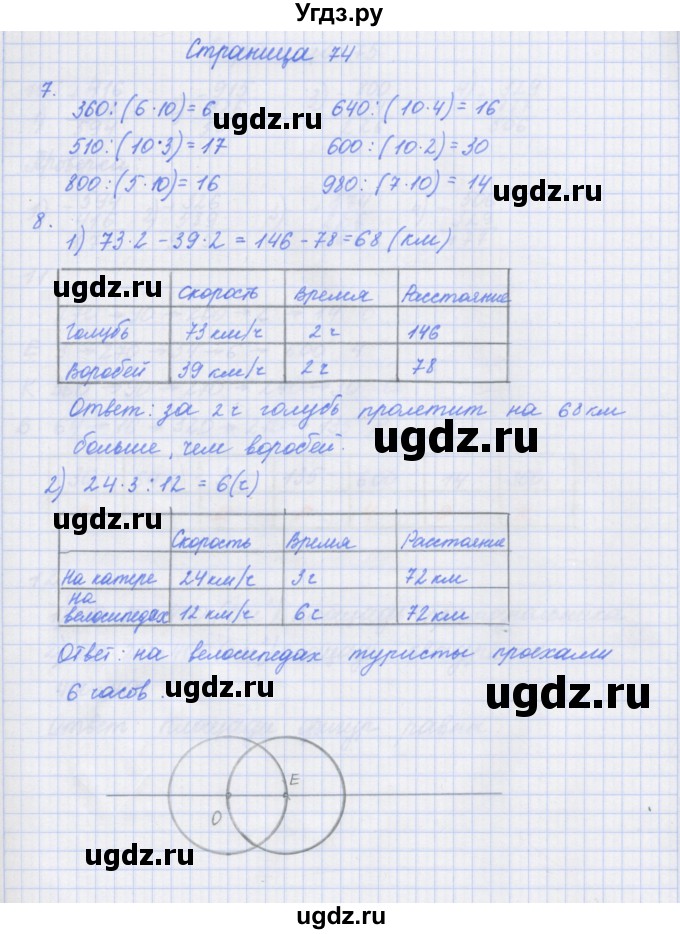 Угдз.ру
Страница 74
7.
360:(6·10)=6 640:(10·4)=16
ugdz.ru
510:(10·3)=17 600:(10·2)=30
800:(5·10)=16 980:(7·10)=14
ugdz.ru
8.
1) 73·2 - 39·2 = 146 - 78 = 68 (км)
ugdz.ru
Скорость Время Расстояние
ugdz.ru
Голубь 73 км/ч 2 ч 146
Воробей 39 км/ч 2 ч 78
Ответ: за 2 ч голубь пролетит на 68 км
больше, чем воробей.
ugdz.ru
2) 24·3:12 = 6(ч)
ugdz.ru
Скорость Время Расстояние
ugdz.ru
На катере 24 км/ч 3 ч 72 км
на
велосипедах 12 км/ч 6 ч 72 км
Ответ: на велосипедах туристы проехали
6 часов.
ugdz.ru
ugdz.ru
E
O
ugdz.ru
ugdz.ru
ugdz.ru